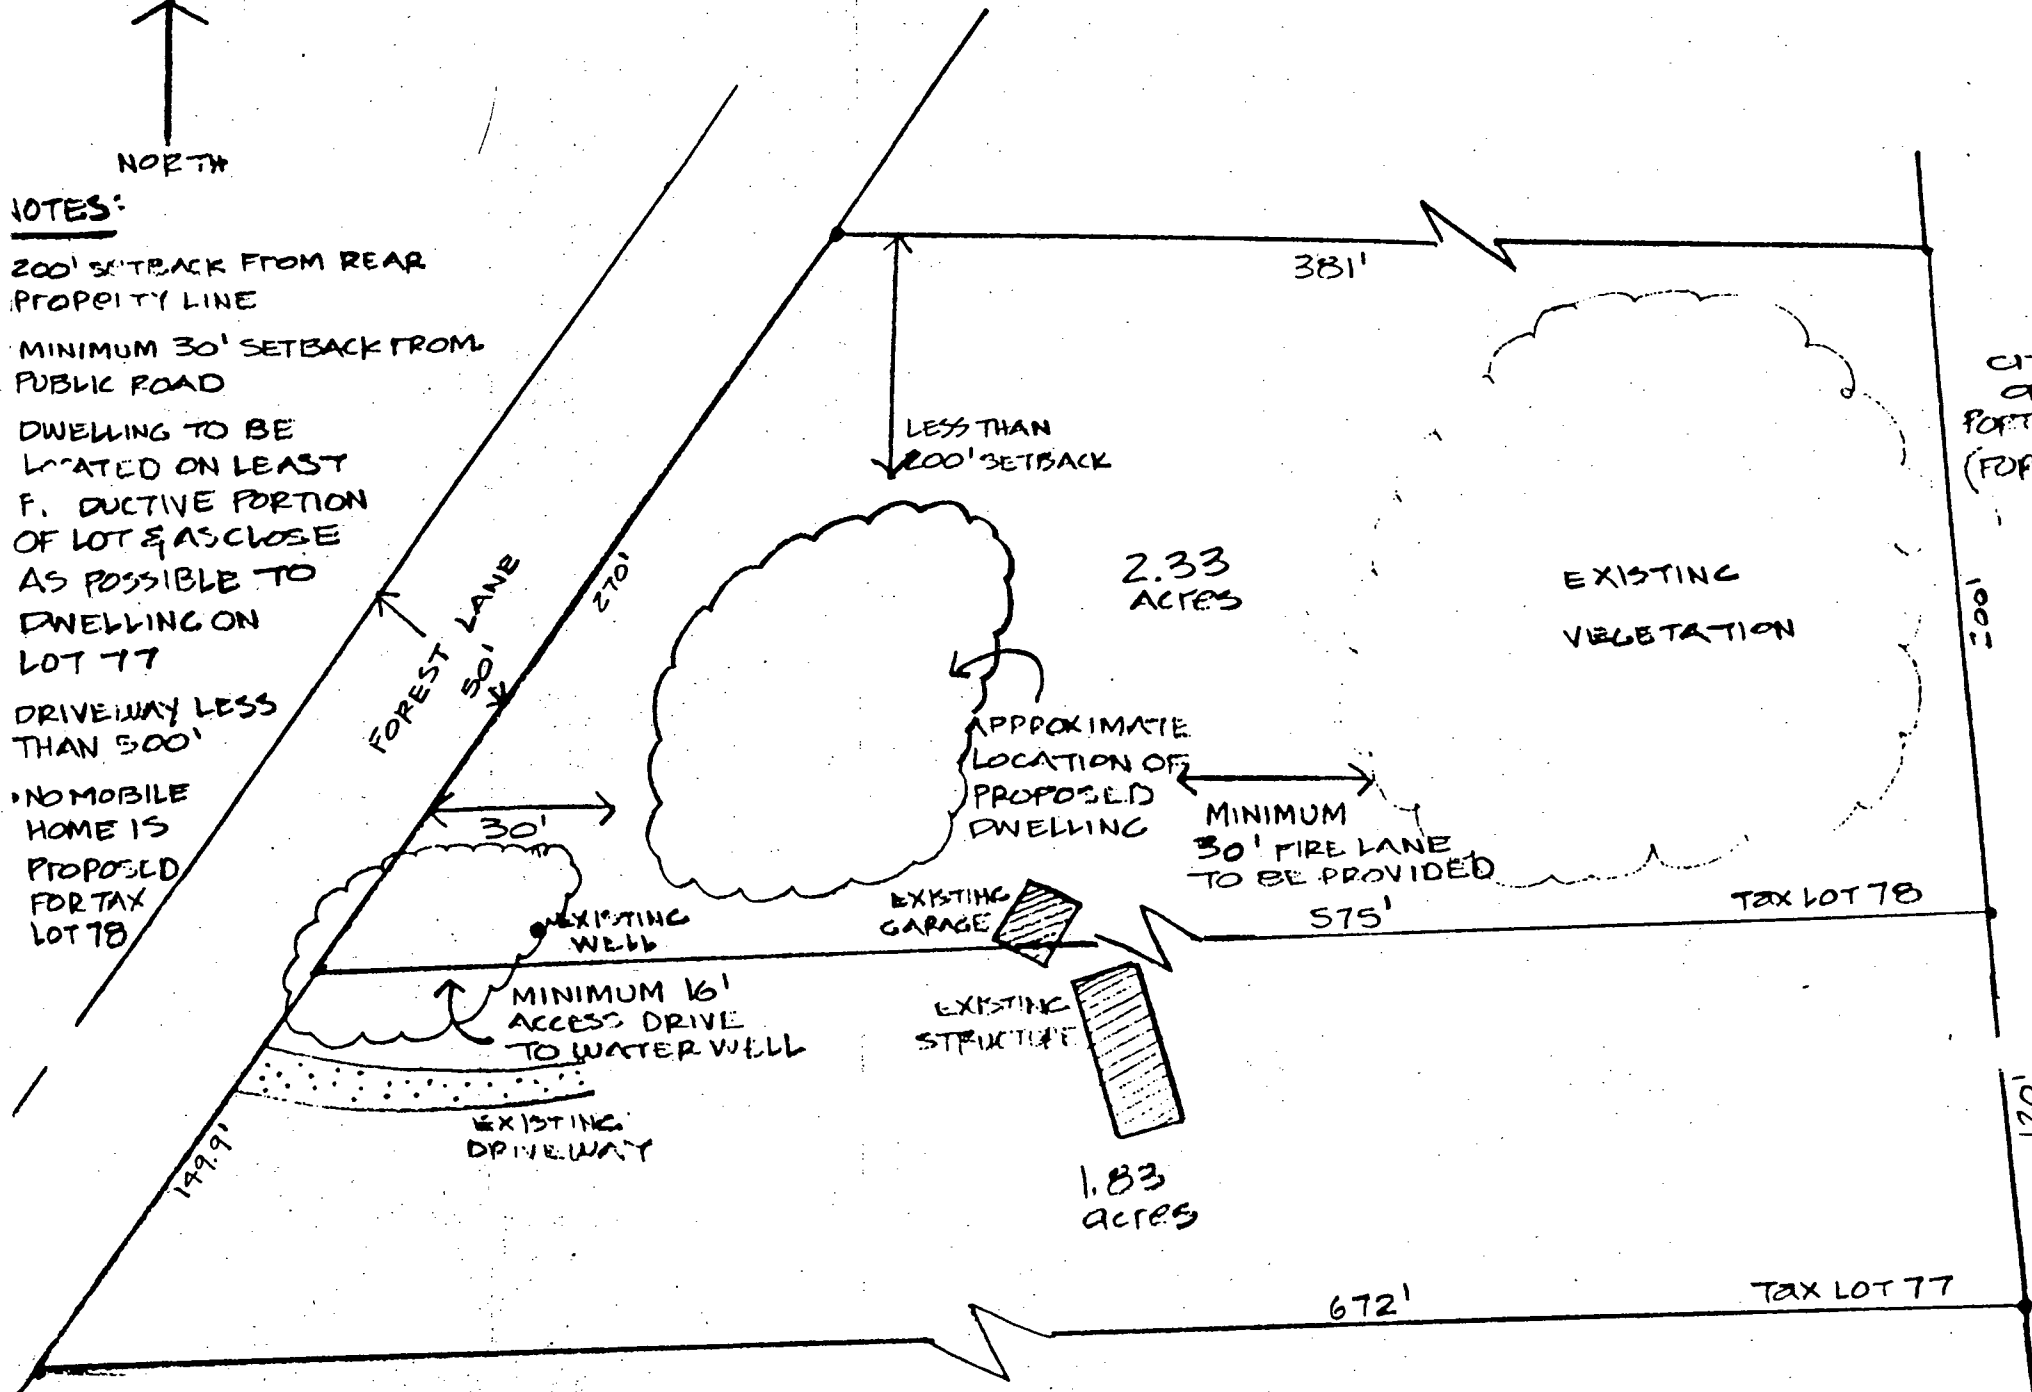 NORTH
NOTES:
200' SETBACK FROM REAR
PROPERTY LINE
MINIMUM 30' SETBACK FROM
PUBLIC ROAD
DWELLING TO BE
LOCATED ON LEAST
PRODUCTIVE PORTION
OF LOT & AS CLOSE
AS POSSIBLE TO
DWELLING ON
LOT 77
DRIVEWAY LESS
THAN 500'
• NO MOBILE
HOME IS
PROPOSED
FOR TAX
LOT 78
381'
LESS THAN
200' SETBACK
FOREST LANE
50'
270'
2.33
Acres
EXISTING
VEGETATION
200'
APPROXIMATE
LOCATION OF
PROPOSED
DWELLING
30'
MINIMUM
30' FIRE LANE
TO BE PROVIDED
EXISTING
WELL
EXISTING
GARAGE
575'
TAX LOT 78
MINIMUM 16'
ACCESS DRIVE
TO WATER WELL
EXISTING
STRUCTURE
EXISTING
DRIVEWAY
149.9'
120'
1.83
acres
672'
TAX LOT 77